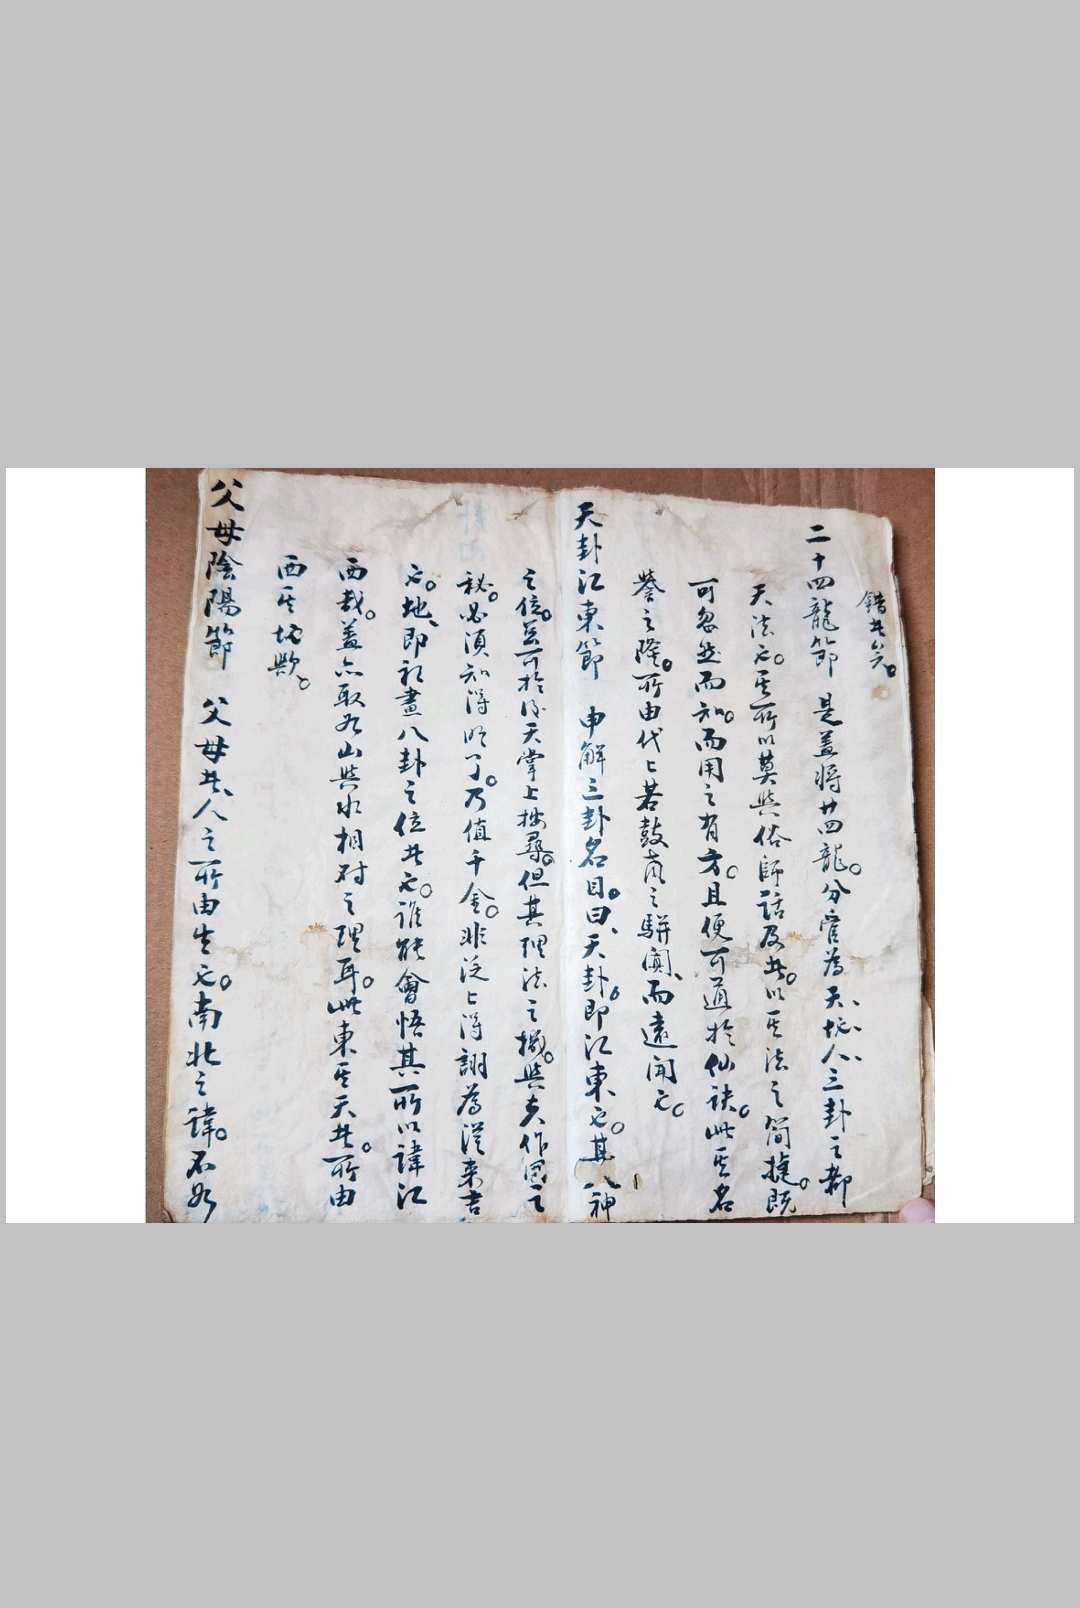 錯者矣。
二十四龍節 是蓋將廿四龍。分官為天、地、人、三卦之都
天法也。其所以莫與俗師話及者。以其法之簡捷。既
可忽然而知。而用之有方。且便可道於仙訣。此其名
譽之隆。所由代々若鼓角之駢闐、而遠聞也。
天卦江東節 申解三卦名目。曰、天卦。即江東也。其八神
之位。並可於後天掌上按尋。但其理法之撇。與夫作用之
秘。必須知得明了。乃值千金。非泛々得謝為從來吉
也。地、即初畫八卦之位者也。誰能會悟其所以諱江
西哉。蓋亦取如山與水相對之理耳。此東其天者。所由
西其地歟。
父母陰陽節 父母者、人之所由生也。南北之諱。不如